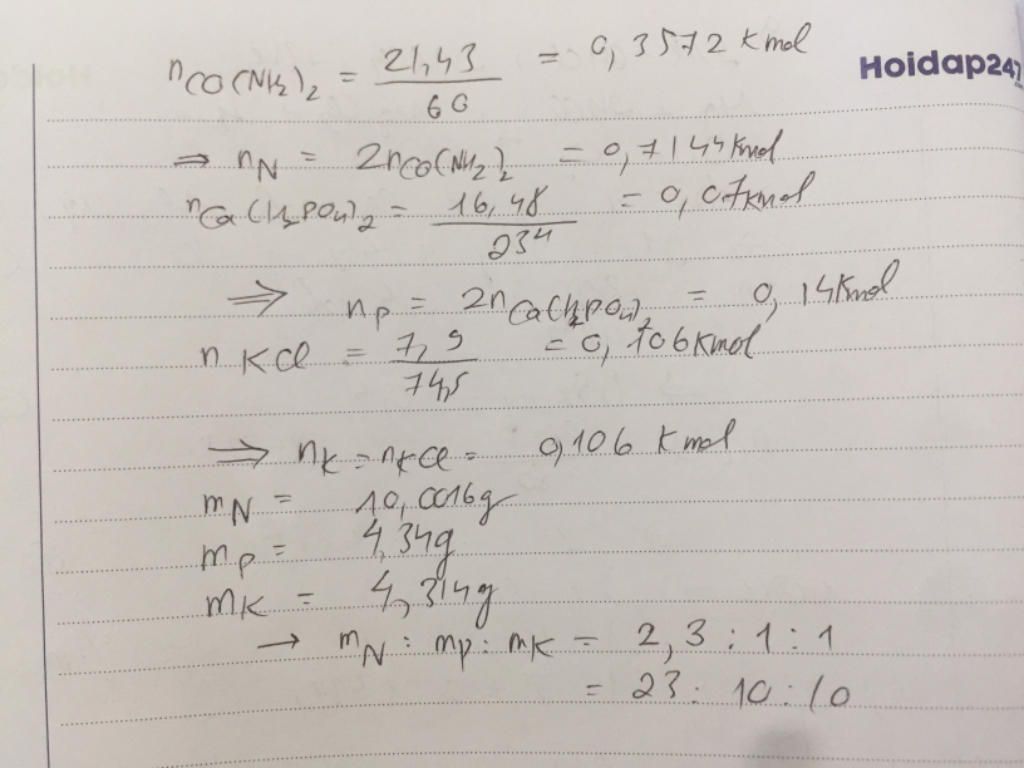 nCO(NH2)2 = 21,43 / 60 = 0,3572 Kmol
Hoidap247
⇒ nN = 2nCO(NH2)2 = 0,7144 Kmol
nCa(H2PO4)2 = 16,48 / 234 = 0,07 kmol
⇒ nP = 2nCa(H2PO4)2 = 0,14 Kmol
nKCl = 7,9 / 74,5 = 0,106 Kmol
⇒ nK = nKCl = 0,106 Kmol
mN = 10,0016g
mP = 4,34g
mK = 4,314g
→ mN : mP : mK = 2,3 : 1 : 1
= 23 : 10 : 10